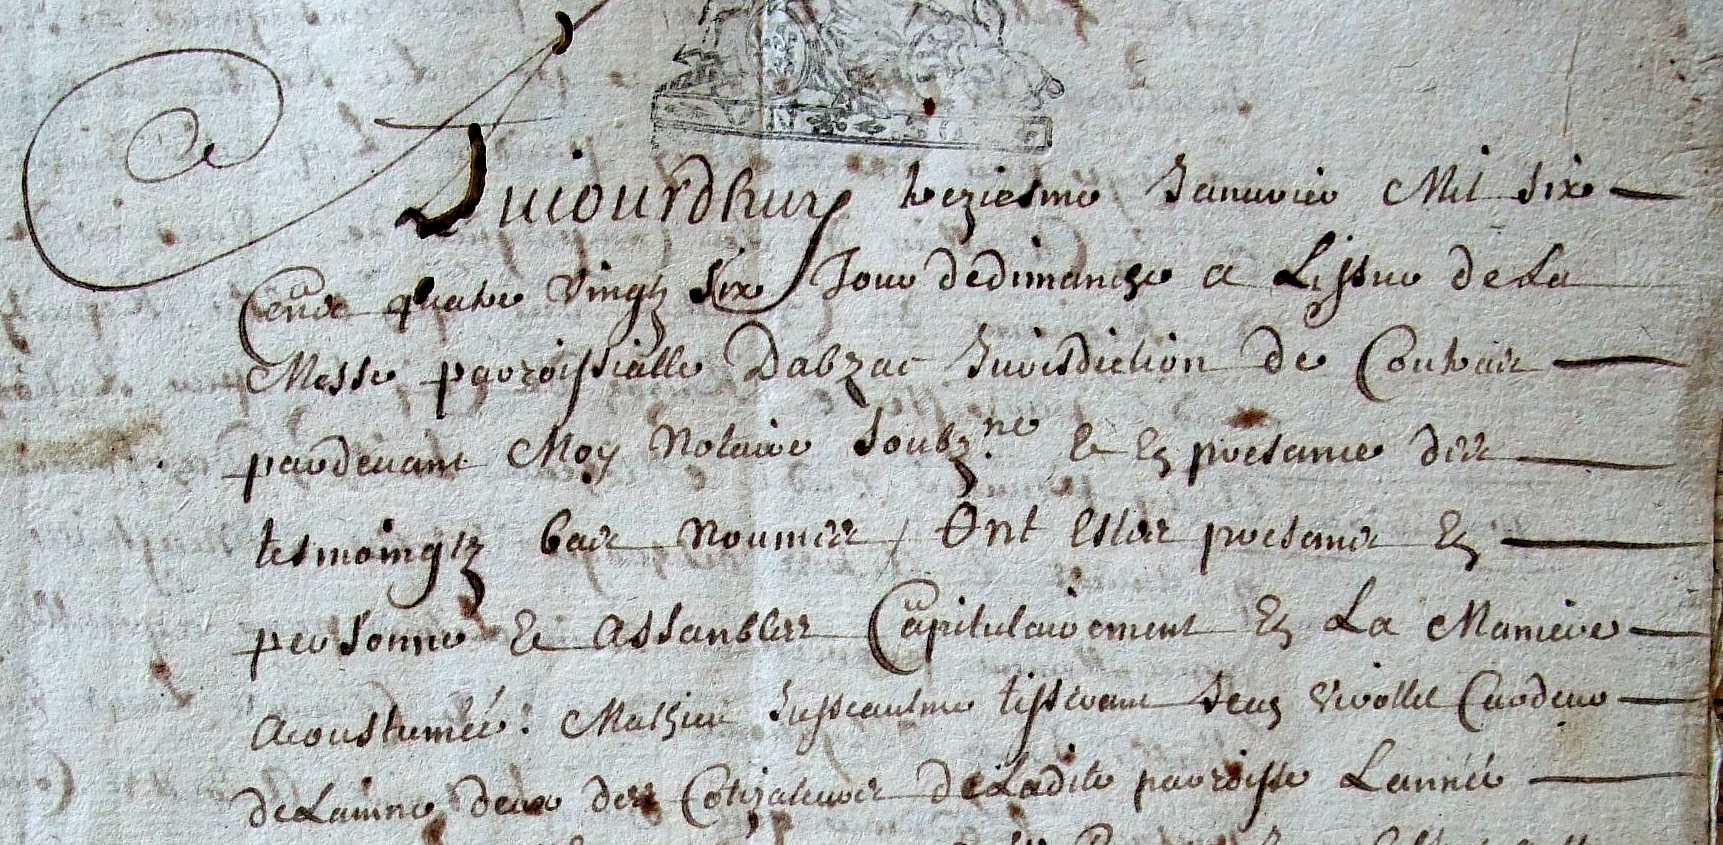 Aujourdhuy treziesme Januvier Mil six
Cens quatre Vingtz Six Jour de dimanche a Lissue de La
Messe parroissialle Dabzac Jurisdiction de Coutras
pardevant Moy Notaire Soubz.ne & En presance des
tesmoingtz bas Nounmes, Ont Estes presans En
personne & assanbles Capitulairement En La Maniere
Acoustumée: Mathieu tisserant Jean Viollet Cardeur
de Lainne deux des Cotizateurs de Ladite parroisse Lannée